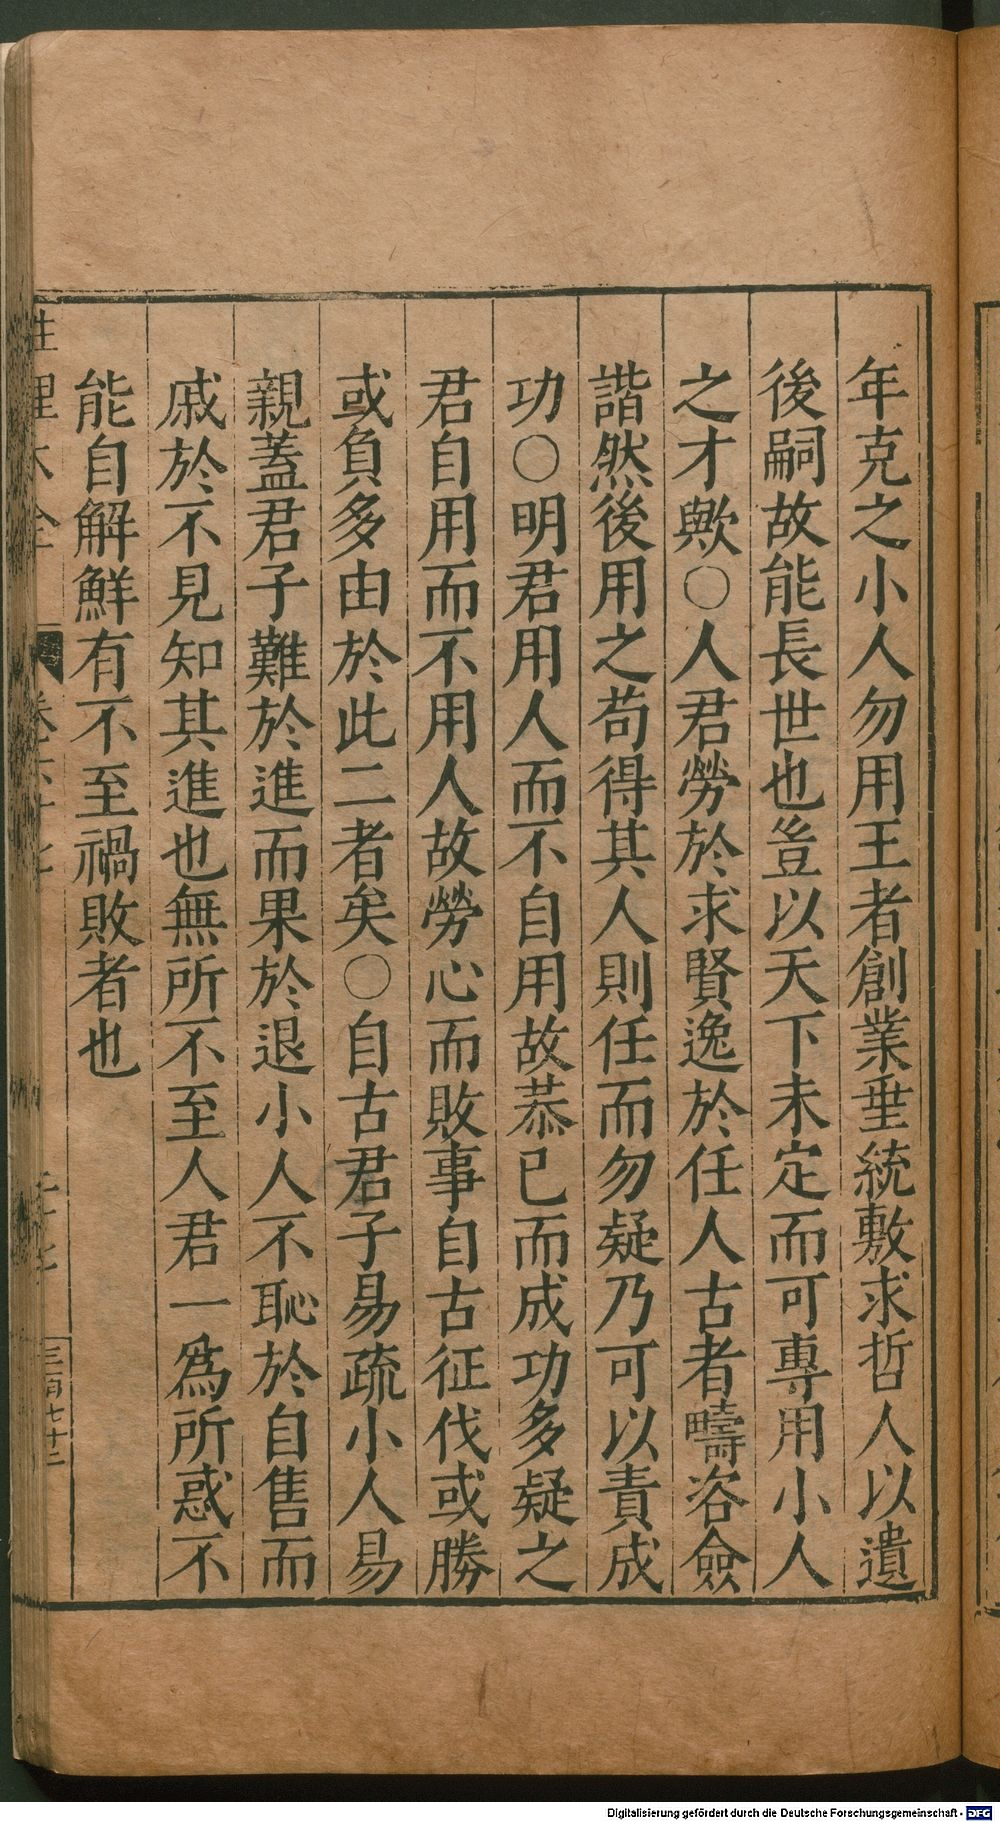 年克之小人勿用王者創業垂統敷求哲人以遺
後嗣故能長世也豈以天下未定而可專用小人
之才歟○人君勞於求賢逸於任人古者疇咨僉
諧然後用之苟得其人則任而勿疑乃可以責成
功○明君用人而不自用故恭已而成功多疑之
君自用而不用人故勞心而敗事自古征伐或勝
或負多由於此二者矣○自古君子易疏小人易
親蓋君子難於進而果於退小人不恥於自售而
戚於不見知其進也無所不至人君一為所惑不
能自解鮮有不至禍敗者也
性理大全
三百七十二
Digitalisierung gefördert durch die Deutsche Forschungsgemeinschaft - DFG